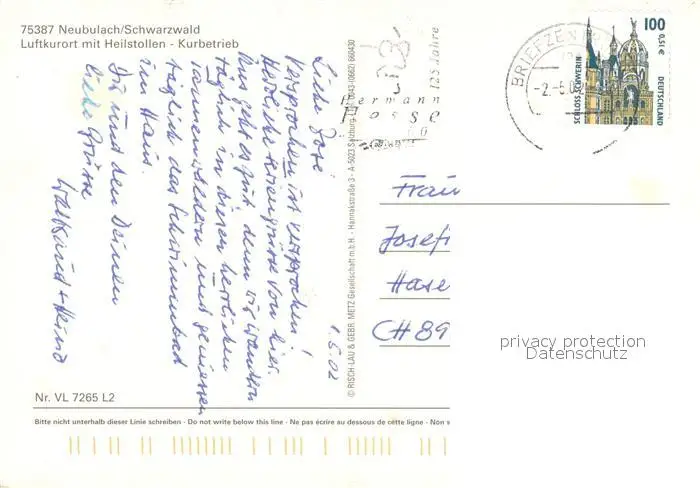 75387 Neubulach/Schwarzwald
Luftkurort mit Heilstollen - Kurbetrieb
1.5.02
Liebe José
Versprochen ist versprochen!
Herzliche Feriengrüsse von hier.
Uns geht es gut, denn wir wandern
täglich in diesen herrlichen
Tannenwäldern und geniessen
täglich das Schwimmbad
im Haus.
Dir und den Deinen
liebe Grüsse
Waltraud + Heinz
Nr. VL 7265 L2
Bitte nicht unterhalb dieser Linie schreiben - Do not write below this line - Ne pas écrire au dessous de cette ligne - Non s
© RISCH-LAU & GEBR. METZ Gesellschaft m.b.H. - Hannakstraße 3 - A-5023 Salzburg (0662) 660430
Hermann
Hesse
125 Jahre
BRIEFZEN
-2.-5.0
100
0,51 €
SCHLOSS SCHWERIN
DEUTSCHLAND
Frau
Josefi
Hase
CH 89
privacy protection
Datenschutz